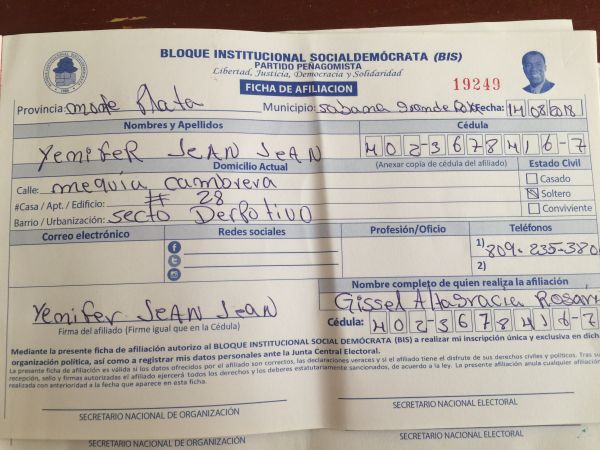 BLOQUE INSTITUCIONAL SOCIALDEMÓCRATA (BIS)
PARTIDO PEÑAGOMISTA
Libertad, Justicia, Democracia y Solidaridad
FICHA DE AFILIACION
19249
Provincia: monte Plata Municipio: sabana Grande Fecha: 14/08/2018
Nombres y Apellidos Cédula
Yemifer Jean Jean 402-3678416-7
Domicilio Actual (Anexar copia de cédula del afiliado) Estado Civil
Calle: mequia cambrera Casado
#Casa / Apt. / Edificio: # 28 Soltero
Barrio / Urbanización: secto Derpotivo Conviviente
Correo electrónico Redes sociales Profesión/Oficio Teléfonos
1) 809-235-380
2)
Nombre completo de quien realiza la afiliación
Yemifer Jean Jean Gissel Altagracia Rosari
Firma del afiliado (Firme igual que en la Cédula) Cédula: 402-3678416-7
Mediante la presente ficha de afiliación autorizo al BLOQUE INSTITUCIONAL SOCIAL DEMÓCRATA (BIS) a realizar mi inscripción única y exclusiva en dich
organización política, así como a registrar mis datos personales ante la Junta Central Electoral.
La presente ficha de afiliación es válida si los datos ofrecidos por el afiliado son correctos, las declaraciones veraces y si el afiliado tiene el disfrute de sus derechos civiles y políticos. Tras su
recepción, sello y firmas autorizadas el afiliado ejercerá todos los derechos y los deberes estatutariamente sancionados, de acuerdo a la ley. La presente afiliación anula cualquier afiliación
realizada con anterioridad a la fecha que aparece en esta ficha.
SECRETARIO NACIONAL DE ORGANIZACIÓN SECRETARIO NACIONAL ELECTORAL
SECRETARIO NACIONAL DE ORGANIZACIÓN SECRETARIO NACIONAL ELECTORAL